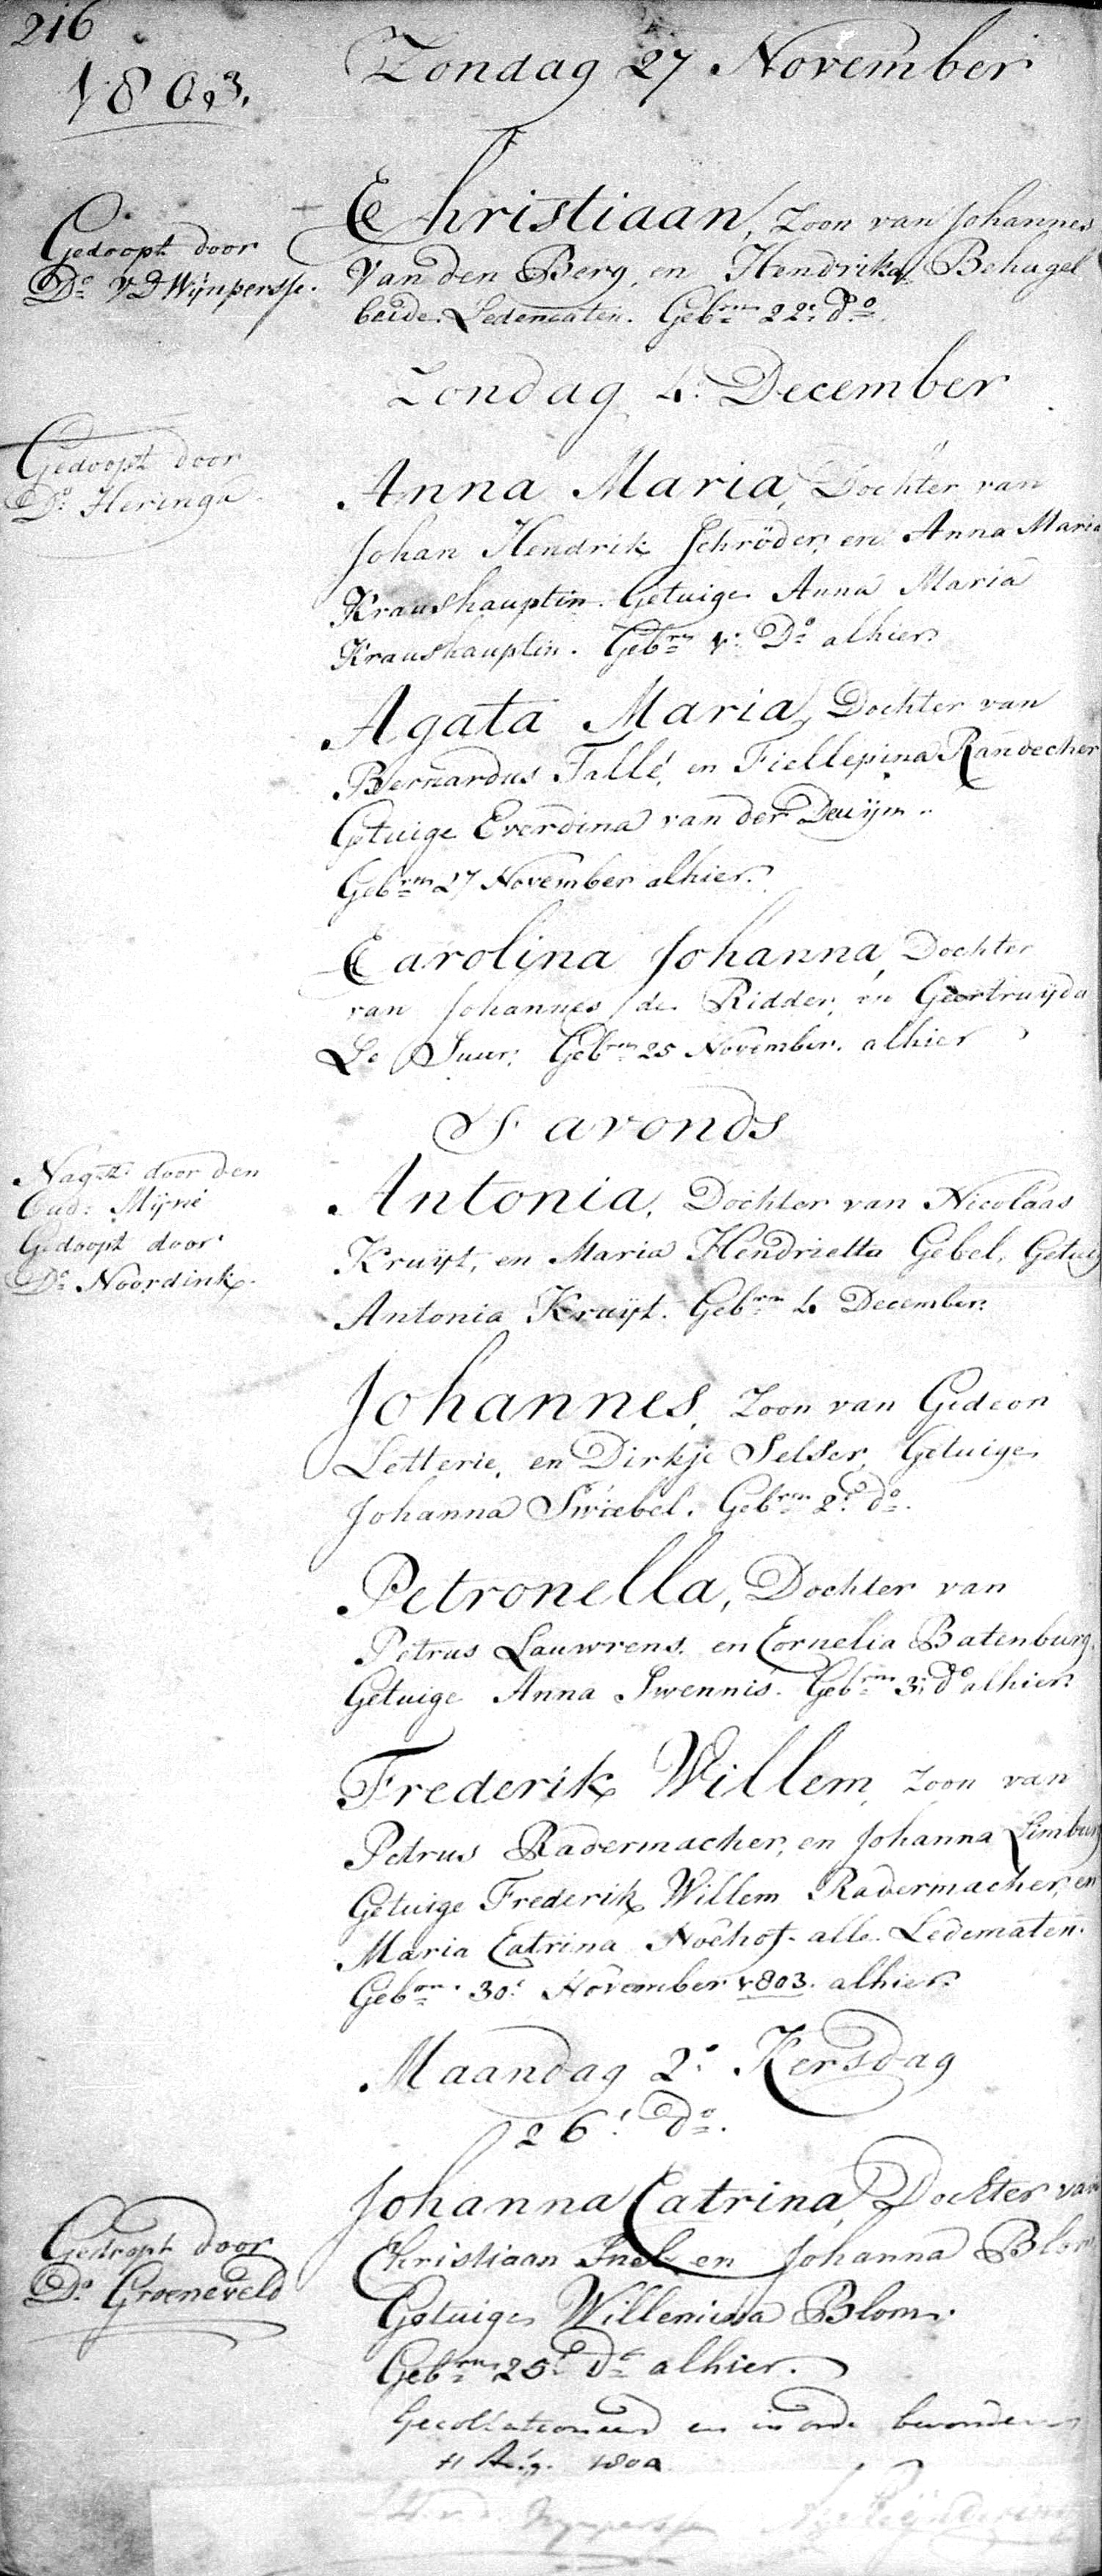 216
1803.
Zondag 27 November
Gedoopt door
Do. v. D Wijnpersse.
Christiaan, Zoon van Johannes
Van den Berg, en Hendrika Behagel
beide Ledematen. Gebrn 22e do.
Zondag 4: December
Gedoopt door
Do. Heringa.
Anna Maria, Dochter van
Johan Hendrik Schröder, en Anna Maria
Kraushauptin. Getuige Anna Maria
Kraushauptin. Gebrn 1: Do alhier.
Agata Maria, Dochter van
Bernardus Tallé, en Fiellepina Randecher
Getuige Everdina van der Deuijm.
Gebrn 27 November alhier.
Carolina Johanna, Dochter
van Johannes de Ridder, en Geertruijda
Le Suur; Gebrn 25 November. alhier
S avonds
Nagtl. door den
Oud: Mijné
Gedoopt door
Do. Noordink.
Antonia, Dochter van Nicolaas
Kruijt, en Maria Hendrietta Gebel, Getuig
Antonia Kruijt. Gebrn 4 December.
Johannes, Zoon van Gedeon
Letterie, en Dirkje Selser, Getuige
Johanna Swiebel. Gebrn 2e do.
Petronella, Dochter van
Petrus Lauwrens. en Cornelia Batenburg.
Getuige Anna Swennis. Gebrn 3e do alhier.
Frederik Willem, Zoon van
Petrus Radermacher, en Johanna Limburg
Getuige Frederik Willem Radermacher, en
Maria Catrina Noëhof. alle Ledematen.
Gebrn. 30e November 1803. alhier.
Maandag 2e Kersdag
26e do.
Gedoopt door
Do. Groeneveld
Johanna Catrina, Dochter van
Christiaan Snel, en Johanna Blom
Getuige Willemina Blom.
Gebrn 25e do alhier.
Gecollationeerd en in orde bevonden
11 Aug. 1804